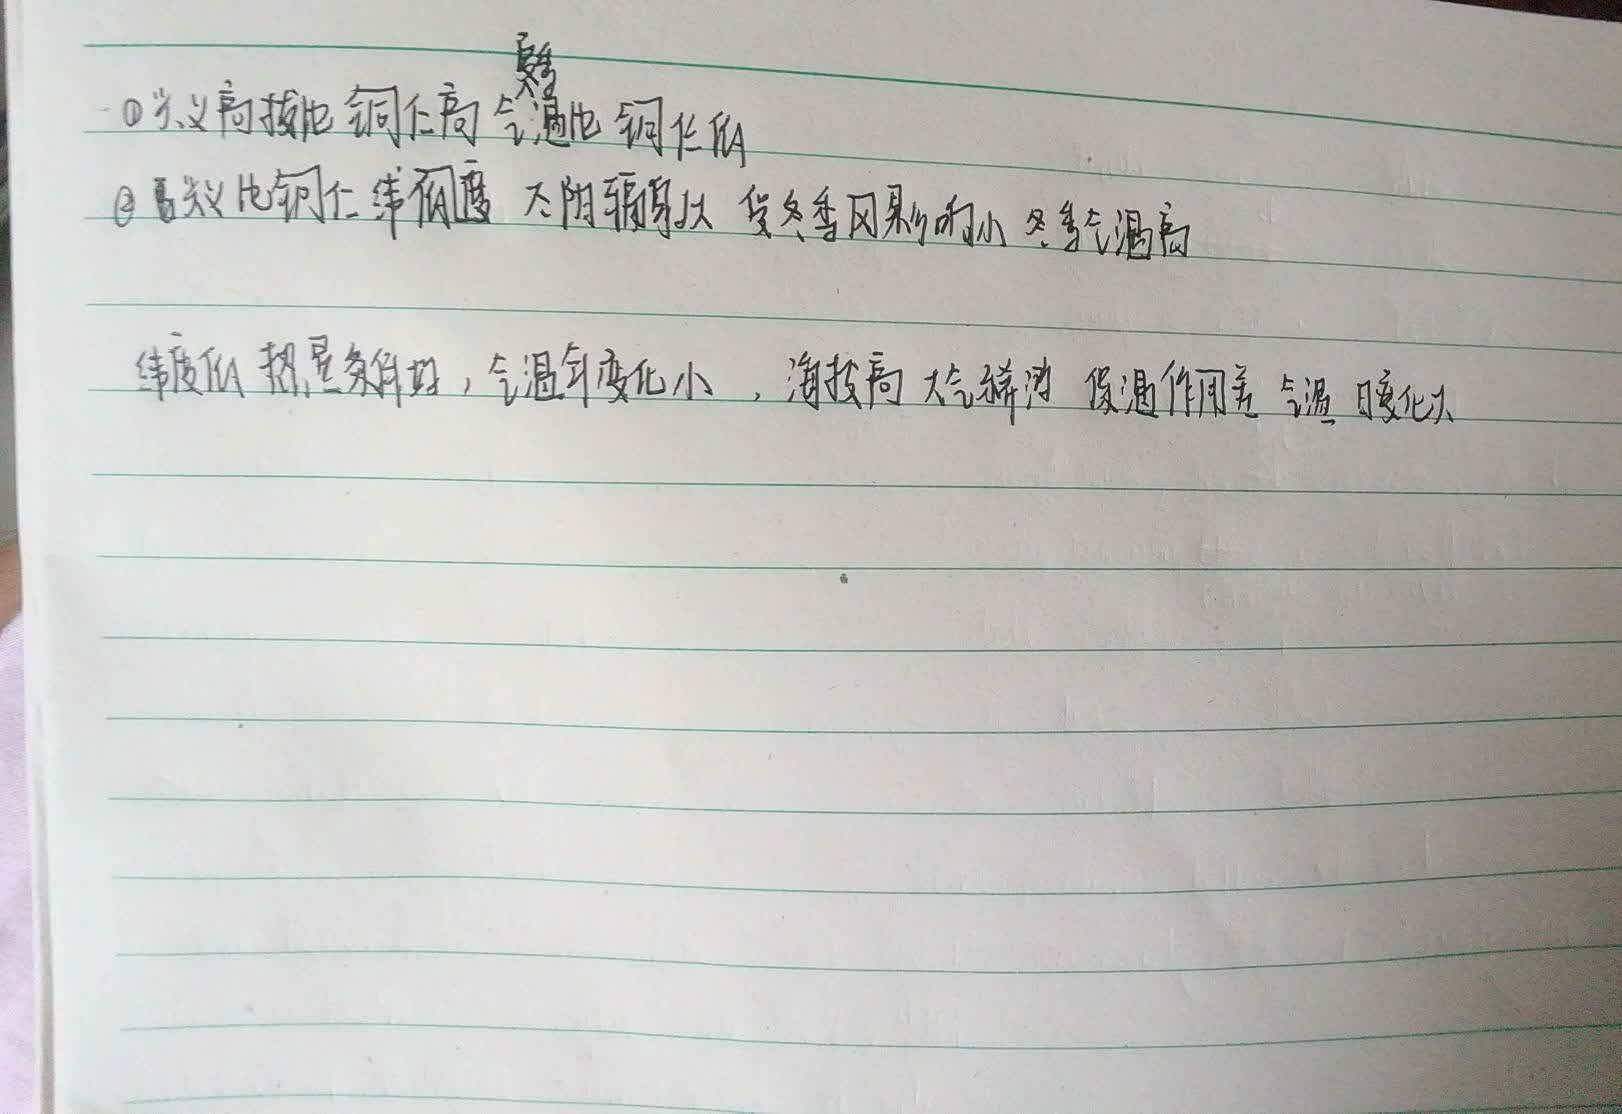 夏季
①兴义高拔比铜仁高 气温比铜仁低
② 兴义比铜仁纬低度 太阳辐射大 受冬季风影响小 冬季气温高
纬度低 热量条件好，气温年变化小，海拔高 大气稀薄 保温作用差 气温 日变化大